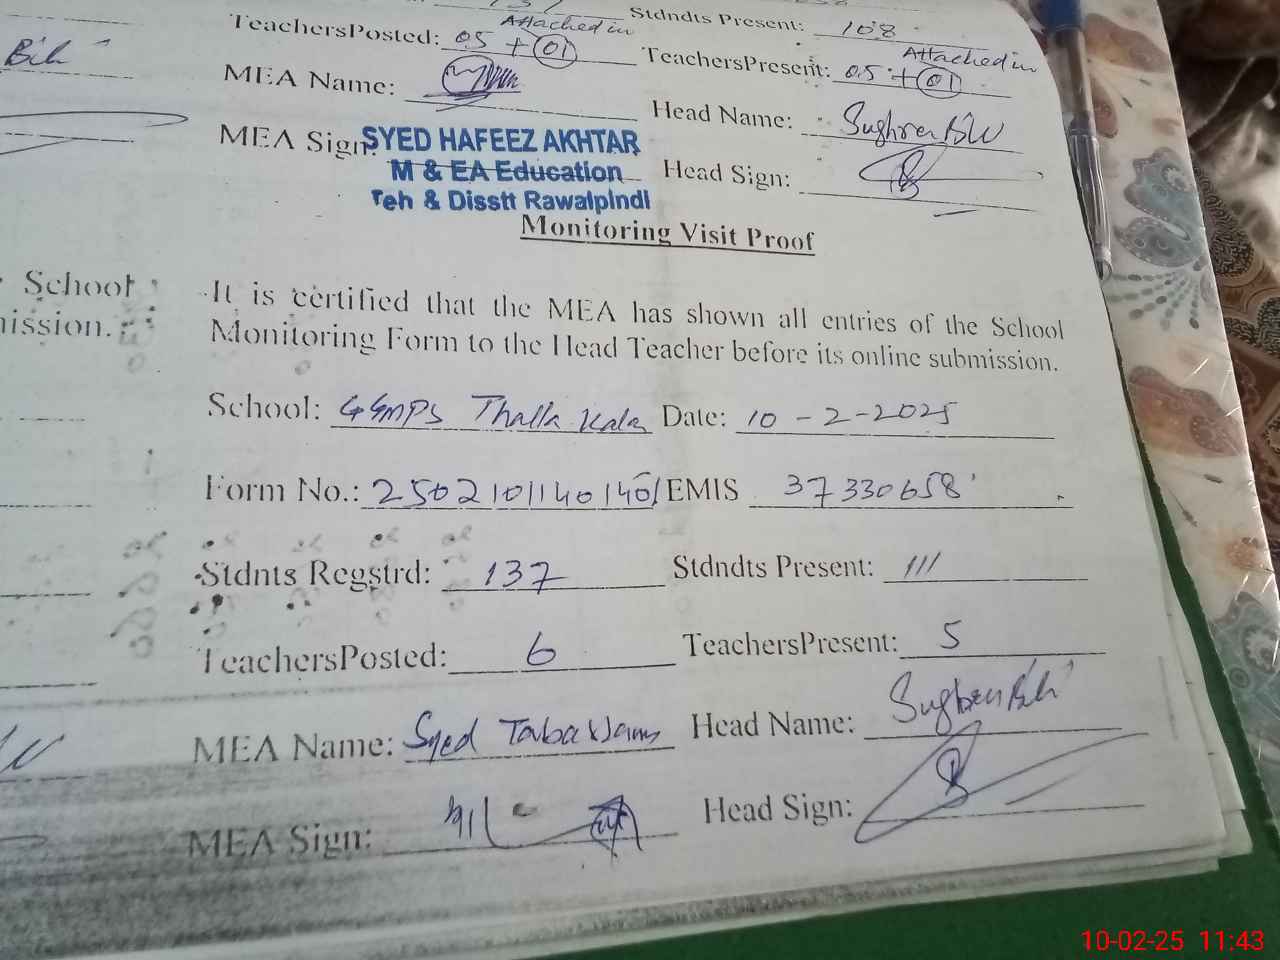 Stdndts Present: 108
Attached in
TeachersPosted: 05 + 01
Attached in
TeachersPresent: 05 + 01
Bibi
MEA Name:
Head Name: Sughra Bibi
MEA Sign:
SYED HAFEEZ AKHTAR
M & EA Education
Teh & Disstt Rawalpindi
Head Sign:
Monitoring Visit Proof
School
It is certified that the MEA has shown all entries of the School
Monitoring Form to the Head Teacher before its online submission.
School: GGMPS Thalla Kala Date: 10-2-2025
Form No.: EMIS 37330658
Stdnts Regstrd: 137 Stdndts Present: 111
TeachersPosted: 6 TeachersPresent: 5
MEA Name: Syed Head Name: Sughra Bibi
MEA Sign: Head Sign:
10-02-25 11:43